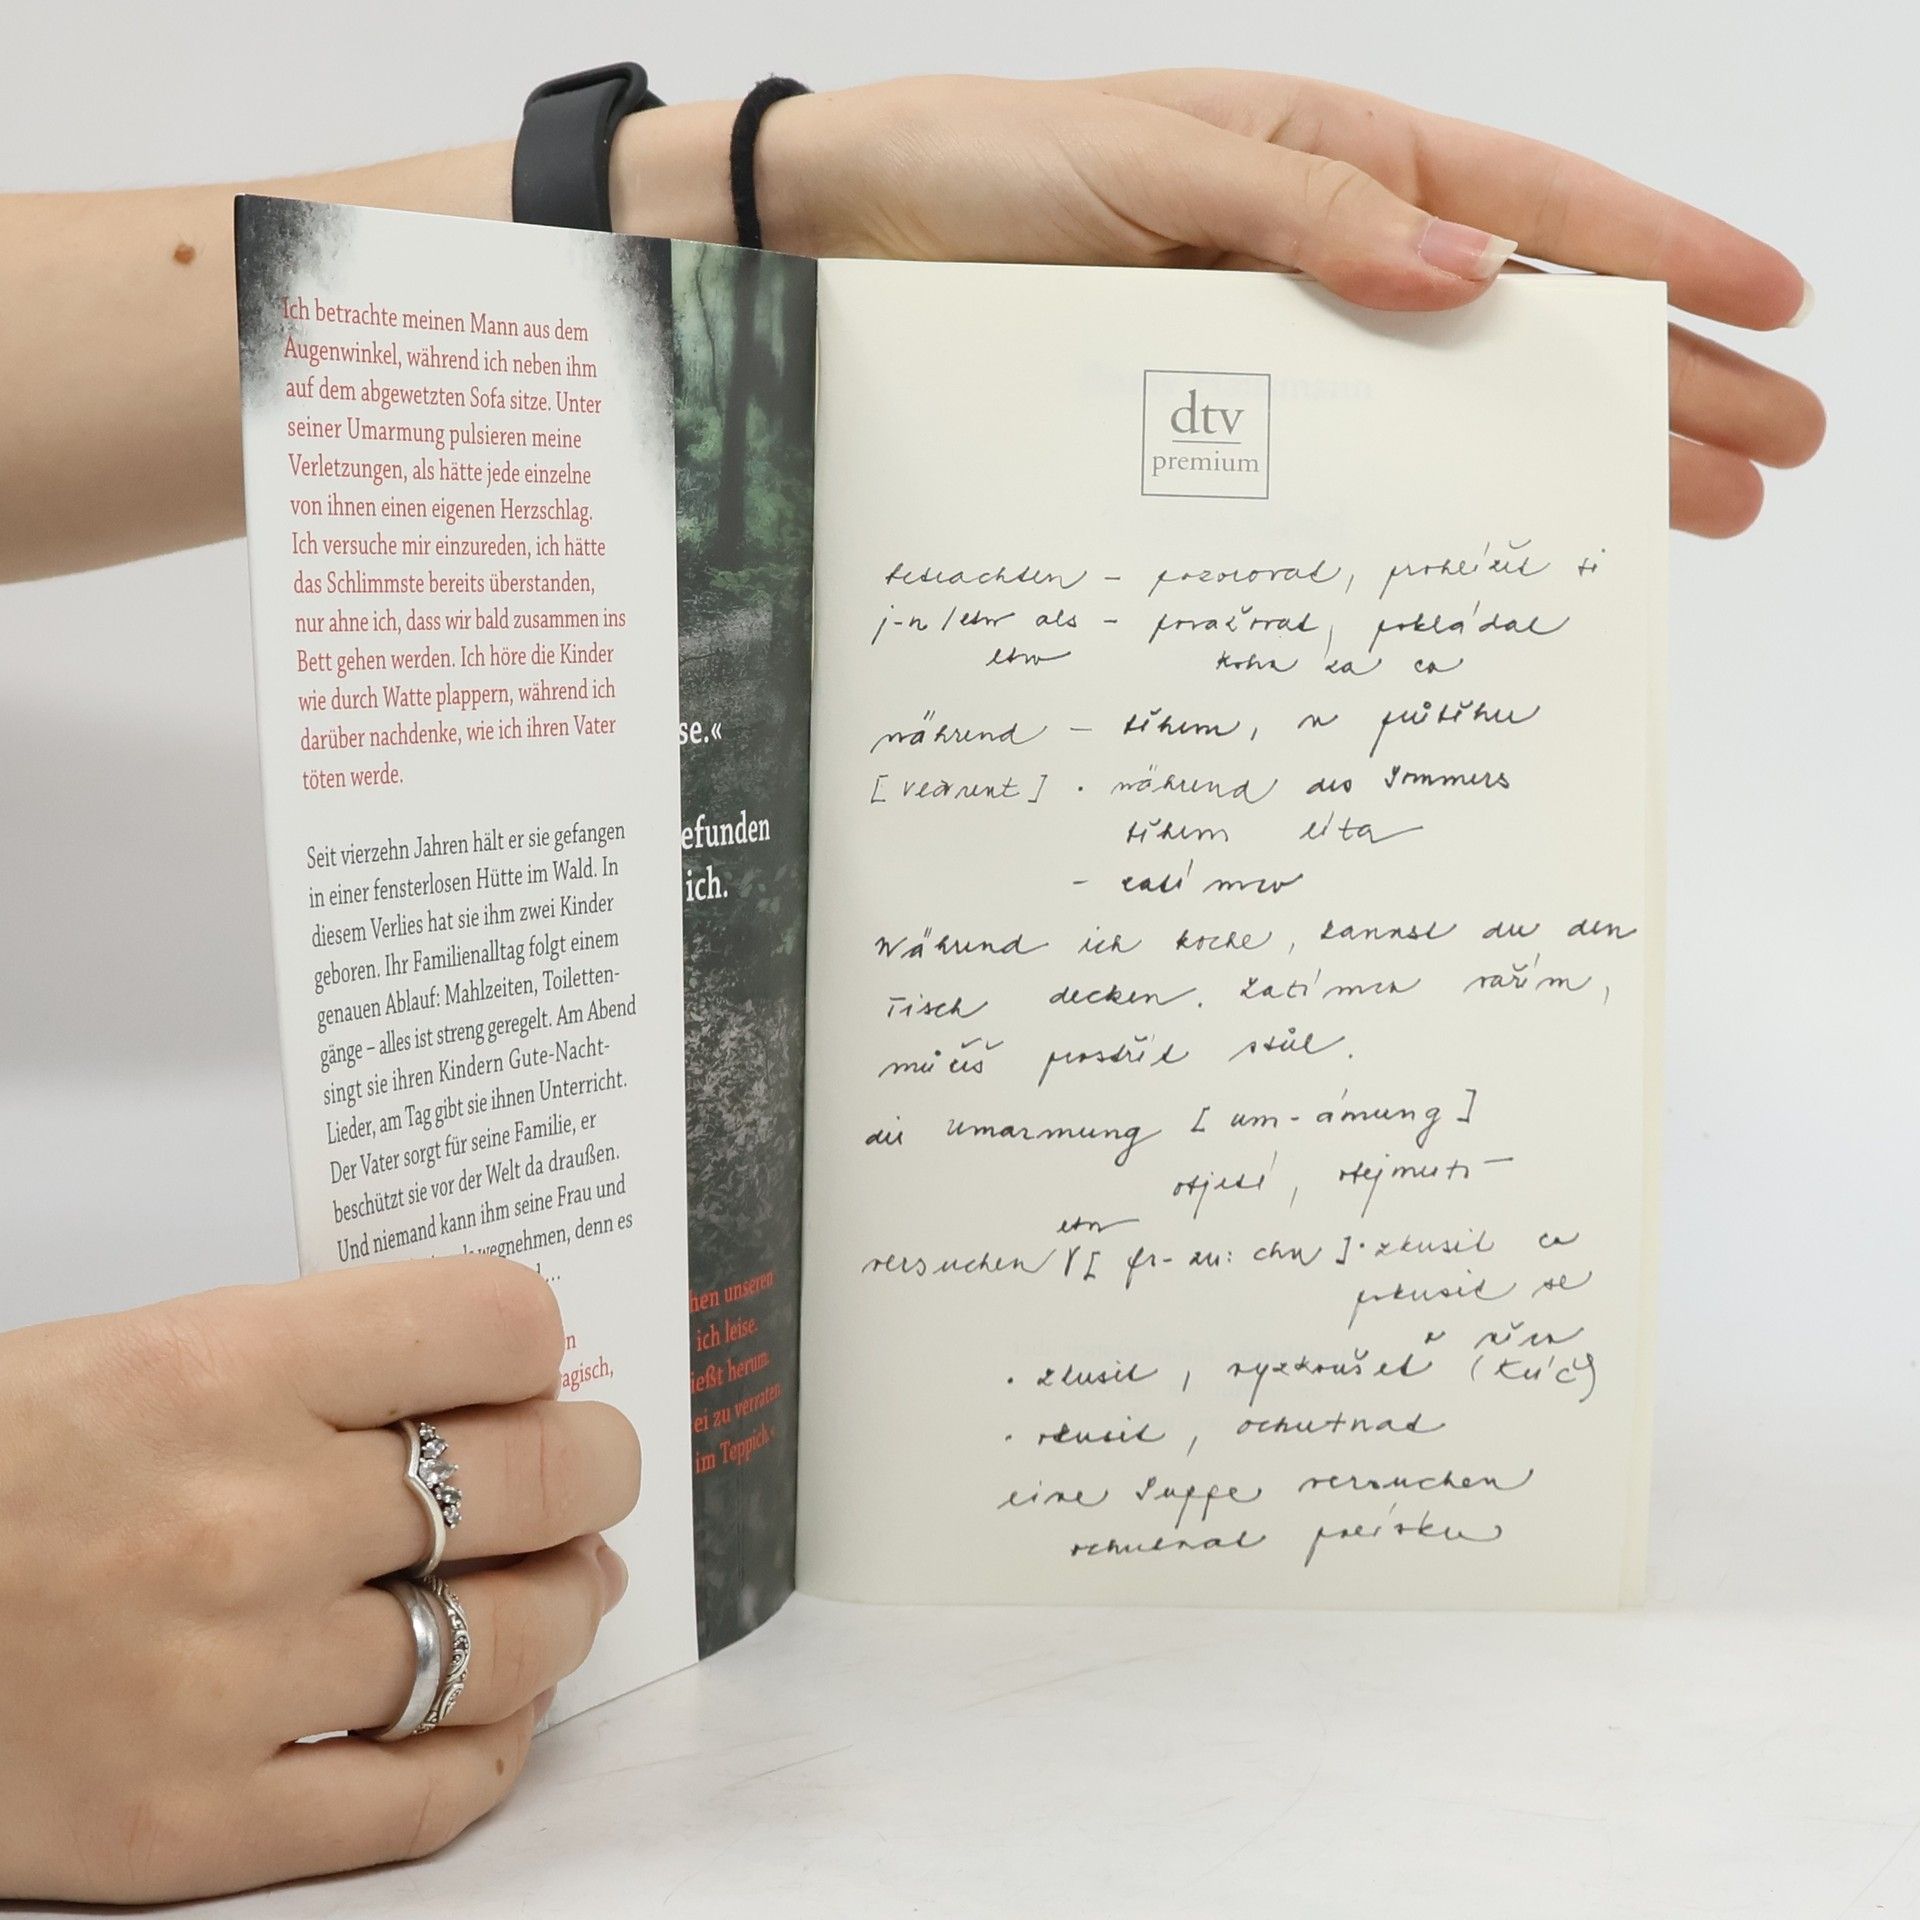 Ich betrachte meinen Mann aus dem
Augenwinkel, während ich neben ihm
auf dem abgewetzten Sofa sitze. Unter
seiner Umarmung pulsieren meine
Verletzungen, als hätte jede einzelne
von ihnen einen eigenen Herzschlag.
Ich versuche mir einzureden, ich hätte
das Schlimmste bereits überstanden,
nur ahne ich, dass wir bald zusammen ins
Bett gehen werden. Ich höre die Kinder
wie durch Watte plappern, während ich
darüber nachdenke, wie ich ihren Vater
töten werde.
Seit vierzehn Jahren hält er sie gefangen
in einer fensterlosen Hütte im Wald. In
diesem Verlies hat sie ihm zwei Kinder
geboren. Ihr Familienalltag folgt einem
genauen Ablauf: Mahlzeiten, Toiletten-
gänge – alles ist streng geregelt. Am Abend
singt sie ihren Kindern Gute-Nacht-
Lieder, am Tag gibt sie ihnen Unterricht.
Der Vater sorgt für seine Familie, er
beschützt sie vor der Welt da draußen.
Und niemand kann ihm seine Frau und
wegnehmen, denn es
se.«
efunden
ich.
hen unseren
ich leise.
ießt herum.
ei zu verraten
im Teppich.«
dtv
premium
betrachten – pozorovat, prohlížet si
j-n/etw als – považovat, pokládat
etw koho za co
während – během, v průběhu
[verent] · während des Sommers
během léta
– zatímco
Während ich koche, kannst du den
Tisch decken. Zatímco vařím,
můžeš prostřít stůl.
die Umarmung [um-ámung]
objetí, obejmutí
etw
versuchen [fr-zu:chn] · zkusit co
pokusit se
o něco
· zkusit, vyzkoušet (klíč)
· okusit, ochutnat
eine Suppe versuchen
ochutnat polévku